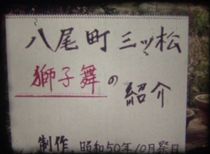 八尾町三ッ松
獅子舞の
紹介
制作 昭和50年10月祭日